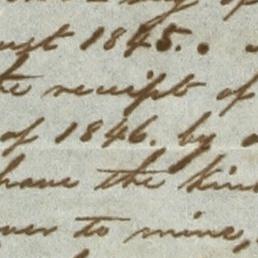 ust 1845.
the receipt of
of 1846. by
have the kin
ver to mine,